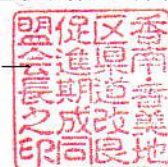 香南香美地
区県道改良
促進期成同
盟会長之印